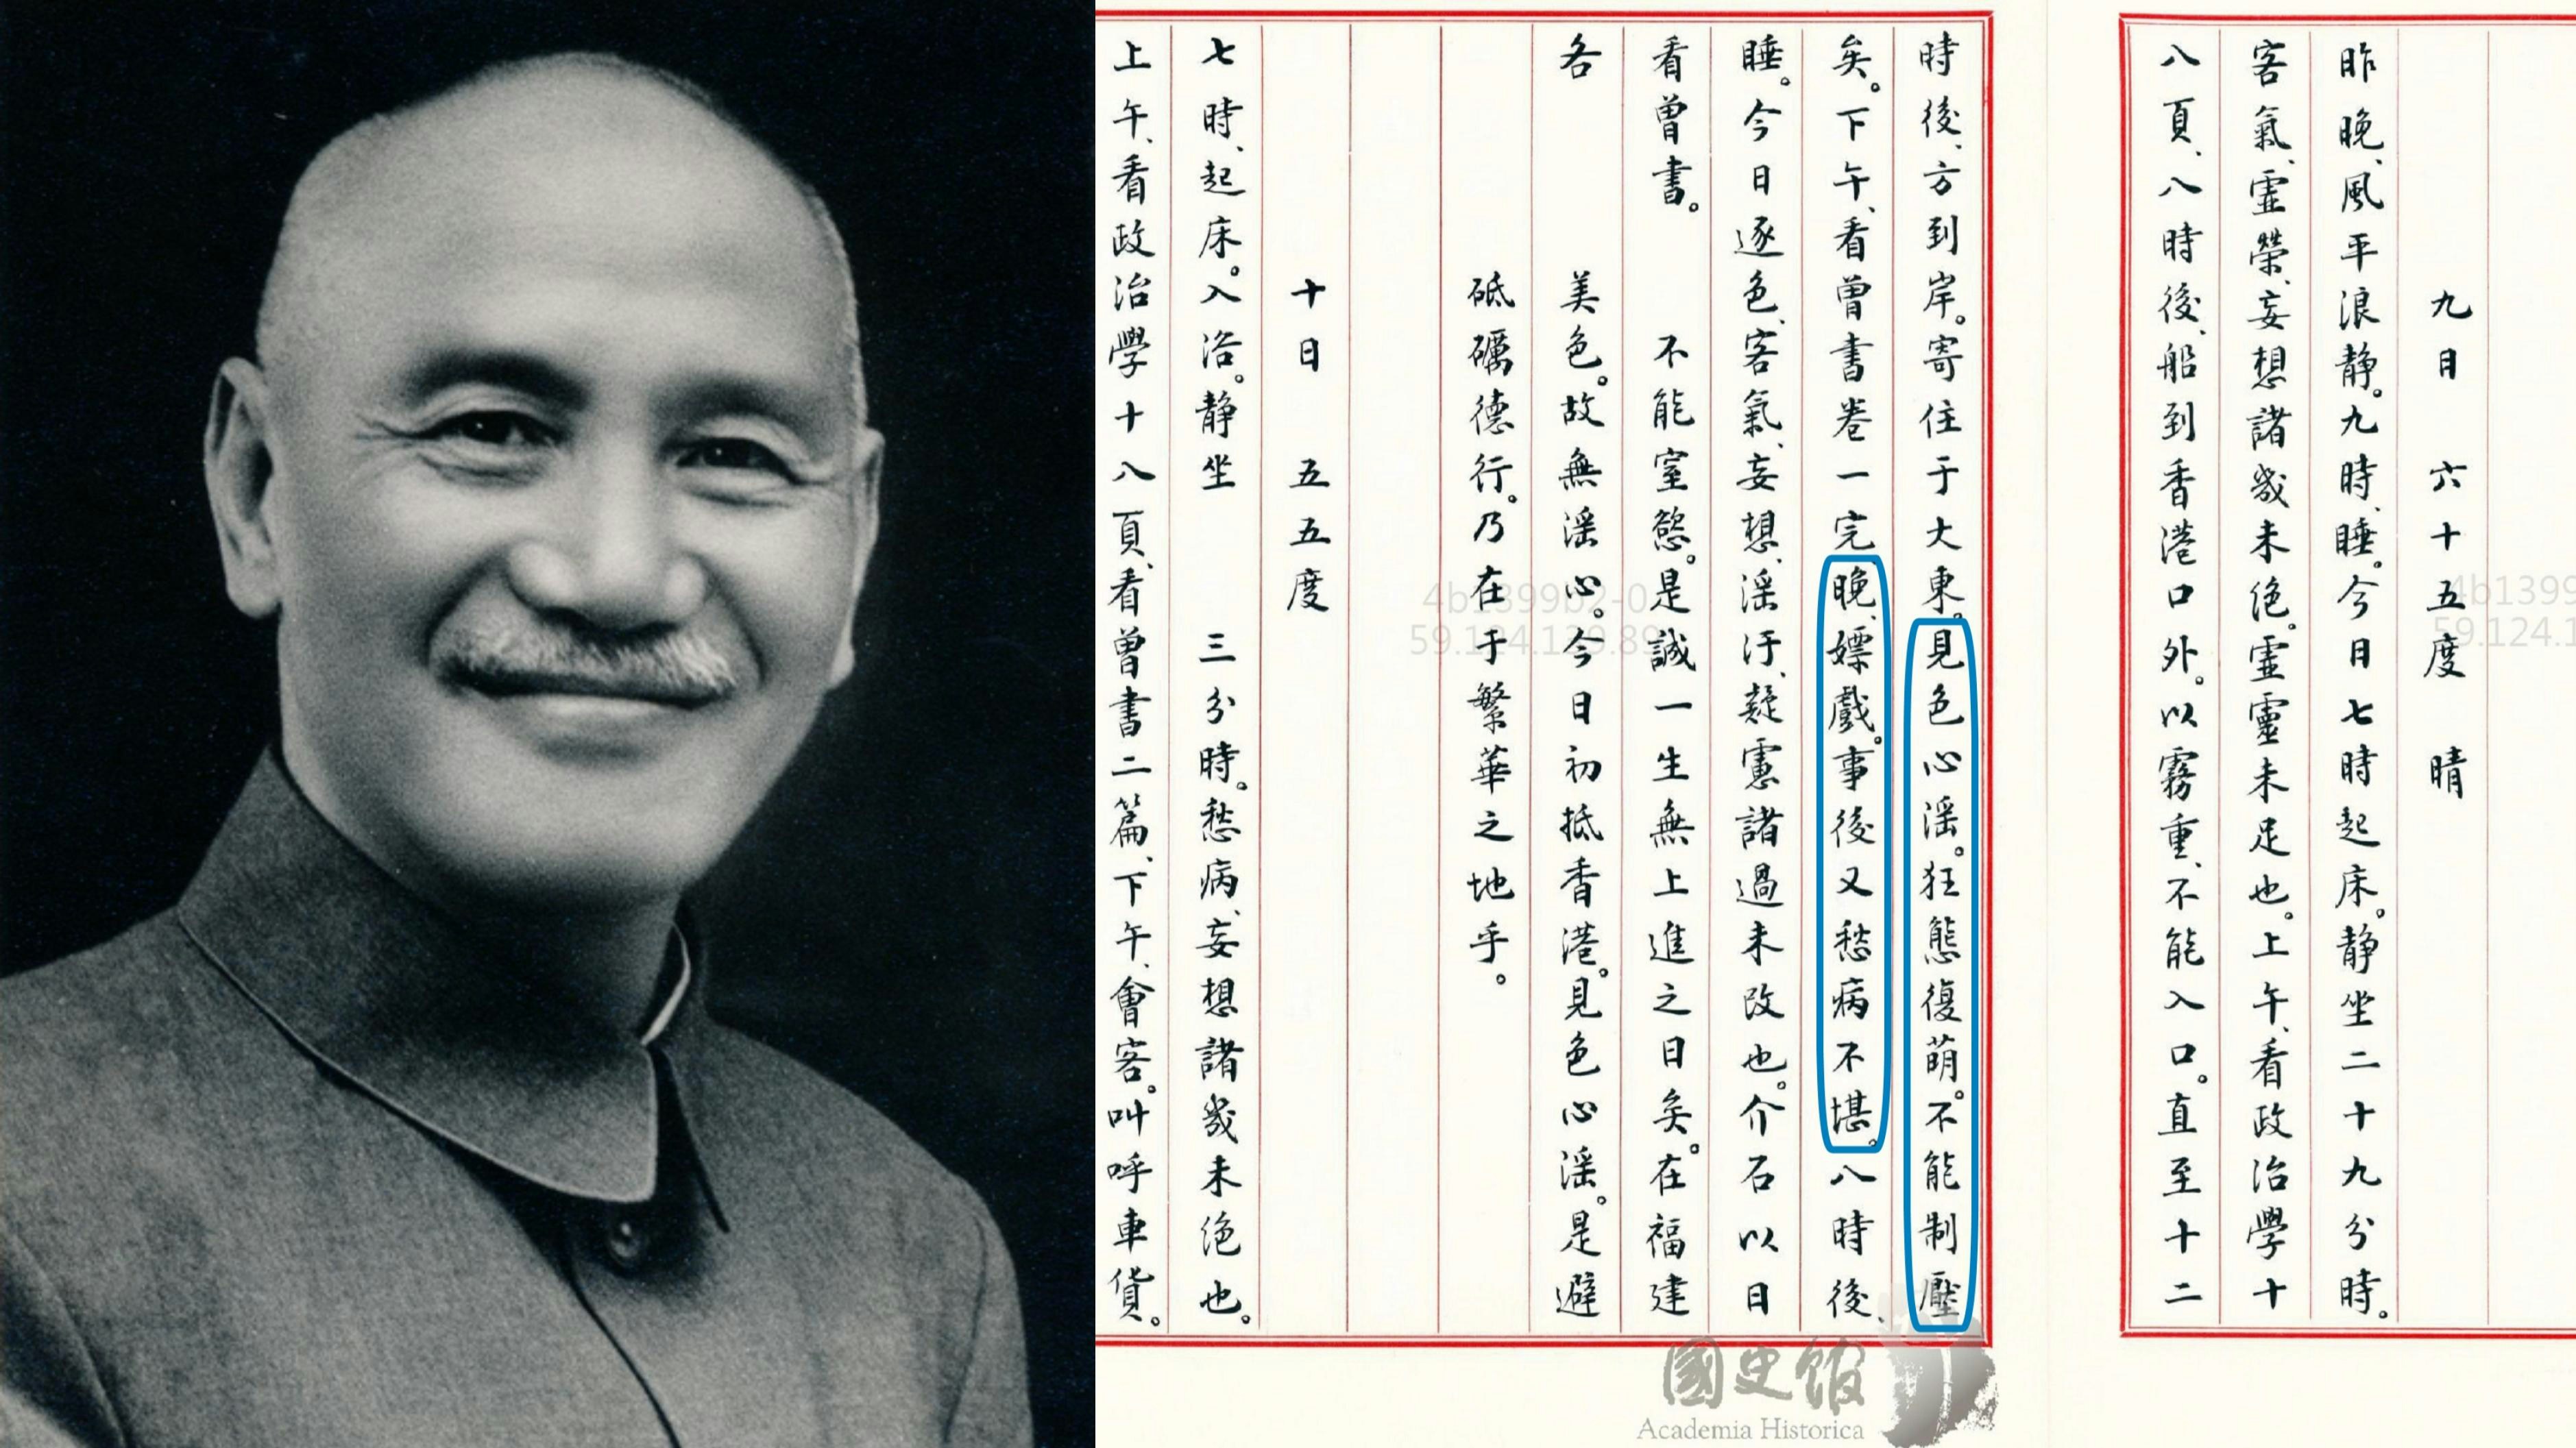 九日 六十五度 晴
昨晚、風平浪靜。九時、睡。今日七時起床。靜坐二十九分時。
客氣、虛榮、妄想諸幾未絕。虛靈未足也。上午、看政治學十
八頁、八時後、船到香港口外。以霧重、不能入口。直至十二
時後、方到岸。寄住于大東。見色心淫。狂態復萌。不能制壓
矣。下午、看曾書卷一完、晚、嫖戲。事後又愁病不堪。八時後、
睡。今日逐色、客氣、妄想、淫汙、疑慮諸過未改也。介石以日
看曾書。 不能窒慾。是誠一生無上進之日矣。在福建
各 美色。故無淫心。今日初抵香港。見色心淫。是避
砥礪德行。乃在于繁華之地乎。
十日 五五度
七時、起床。入浴。靜坐 三分時。愁病、妄想諸幾未絕也。
上午、看政治學十八頁、看曾書二篇、下午、會客。叫呼車貨。
4b1399b2-0
59.124.139.89
4b1399
59.124.1
國史館
Academia Historica